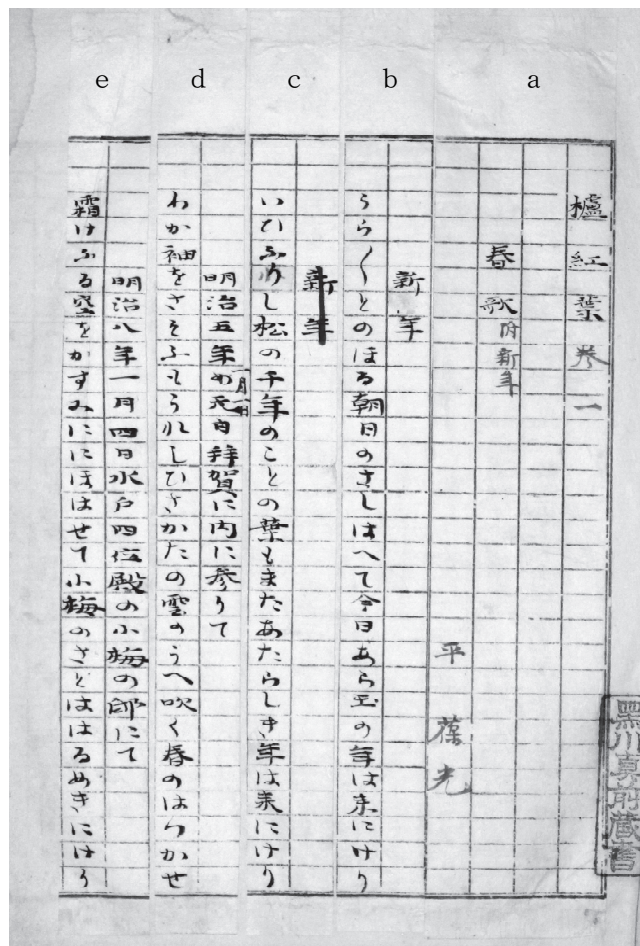 e d c b a
櫨紅葉巻一
春歌 附新年
平葆光
新年
うら〳〵とのほる朝日のさしはへて今日あら玉の年は来にけり
新年
いひふりし松の千年のことの葉もまたあたらしき年は来にけり
明治五年の元日一月一日拝賀に内に参りて
わか袖をさそふもうれしひさかたの雲のうへ吹く春のはつかせ
明治八年一月四日水戸四位殿の小梅の邸にて
霜けふる空をかすみににほはせて小梅のさとははるめきにけり
黒川真前蔵書